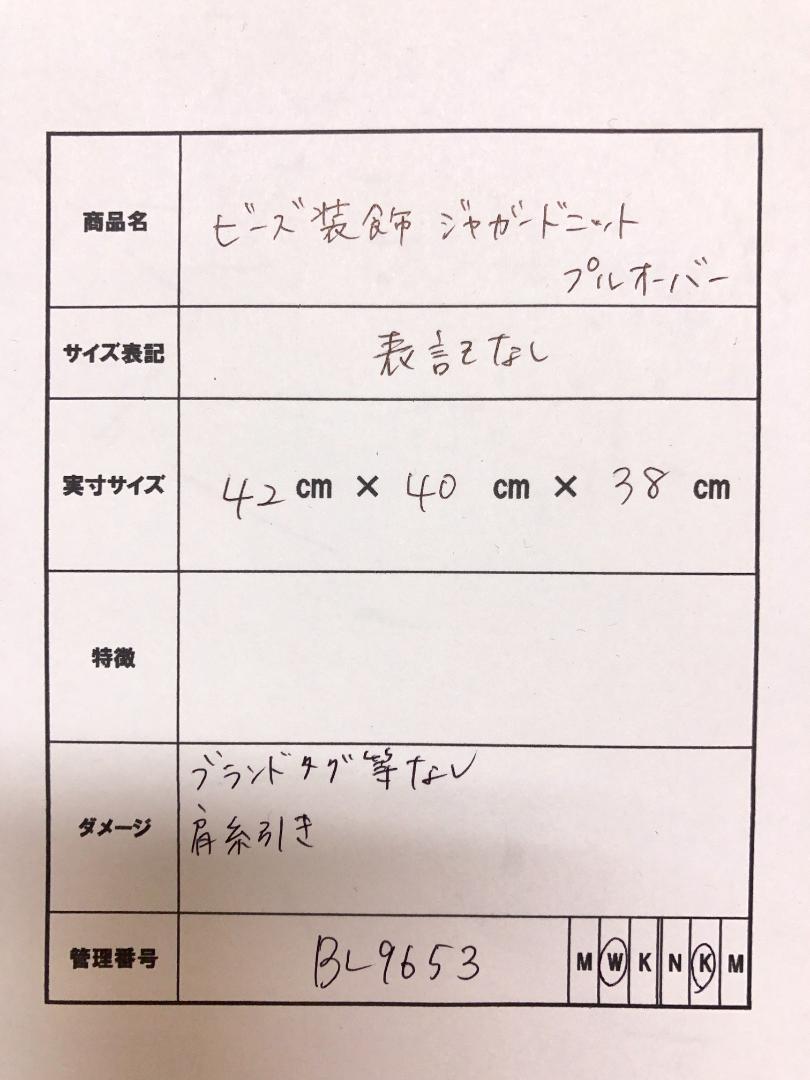 商品名 ビーズ装飾 ジャガードニット
プルオーバー
サイズ表記 表記なし
実寸サイズ 42 cm × 40 cm × 38 cm
特徴
ブランドタグ等なし
ダメージ 肩糸引き
管理番号 BL9653 M W K N K M